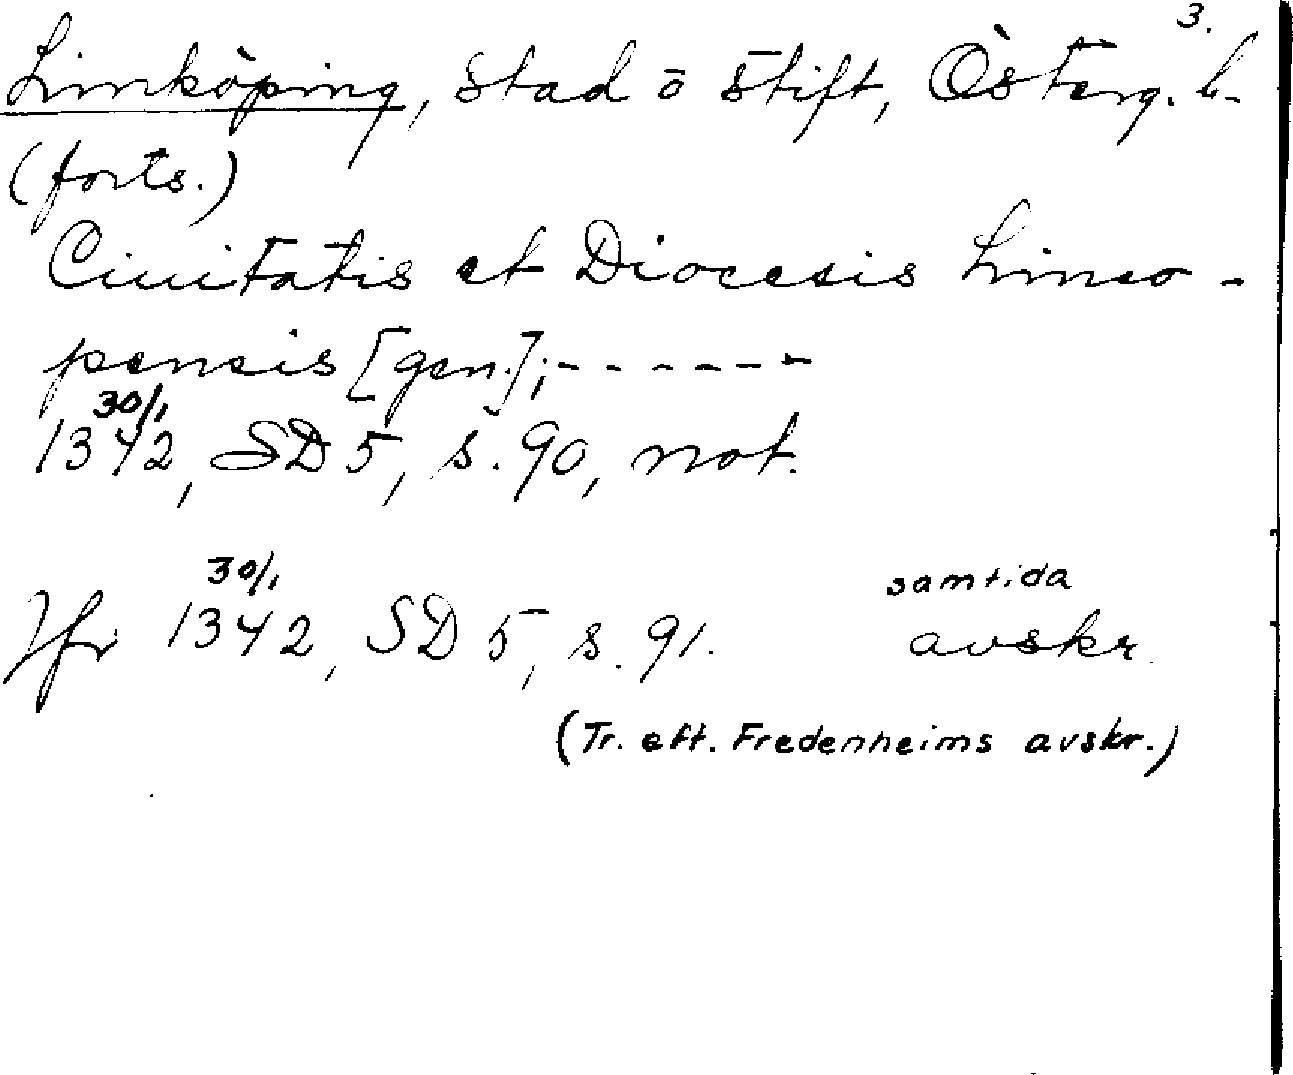 3.
Linköping, stad o stift, Österg. l.
(forts.)
Ciuitatis et Diocesis Linco-
pensis [gen.]; - - - - - -
30/1
1342, SD 5, s. 90, not.
30/1 samtida
Jfr 1342, SD 5, s. 91. avskr.
(Tr. eft. Fredenheims avskr.)